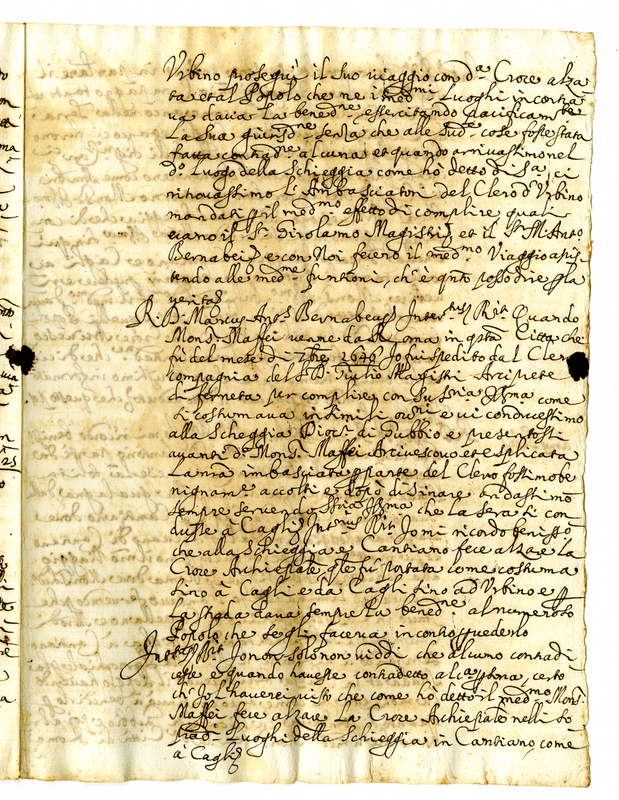 Urbino proseguì il suo viaggio con dª Croce alza
ta et al Popolo che ne i medmi Luoghi incontra
va dava la benedne essercitando pacificamte
La sua giurisdne senza che alle sude cose fosse stata
fatta contradne alcuna et quando arrivassimo nel
do Luogo della Scheggia come ho detto di sª, ci
ritrovassimo l'Ambasciatori del Clero d'Urbino
mandati p il medmo effetto di complire quali
erano il Sr Girolamo Magistri et il Sr M Anto
Bernabei, e con Noi fecero il medmo Viaggio assis
tendo alle medme funtioni, ch'è qnto posso dire p la
verità
R. D. Marcus Ants Bernabeus Interrtus Rit Quando
Monsr Maffei venne da Roma in qsta Città che
fù del mese di 7bre 1646 Io fui spedito dal Clero
compagnia del Sr D. Giulio Magistri Arciprete
di Fermeta per complire con Sua Sria Illma come
si costumava in simili occni e vi conducessimo
alla Scheggia Diocsi di Gubbio e presentossi
avanti do Monsr Maffei Arcivescovo et esplicata
La nra imbasciata p parte del Clero fossimo be
nignamte accolti e dopò disinare andassimo
sempre servendo Sria Illma che la sera si con
dusse à Cagli Intrrus Rit Io mi ricordo benissmo
che alla Scheggia e Cantiano fece alzare la
Croce Archiepale, qle fù portata come costuma
sino à Cagli e da Cagli sino ad Urbino e p
La strada dava sempre la benedne al numeroso
Popolo che segli faceva incontro p vederlo
Intrrus Rit Io non solo non viddi che alcuno contradi
cesse e quando havesse contradetto alcª psona, certo
che Io L'haverei visto che come ho detto il medmo Monsr
Maffei fece alzare La Croce Archiepale nelli so
pradi Luoghi della Scheggia in Cantiano, come
à Cagli